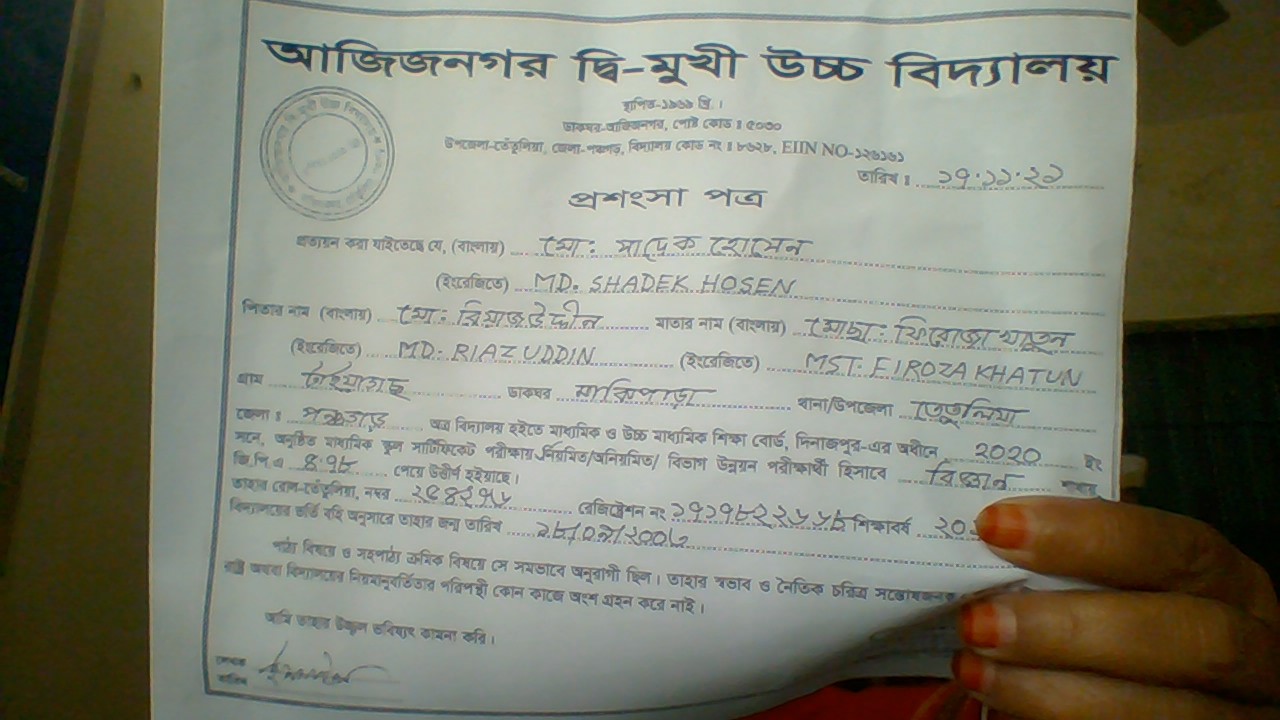 আজিজনগর দ্বি-মুখী উচ্চ বিদ্যালয়
স্থাপিত-১৯৬৯ খ্রি।
ডাকঘর-আজিজনগর, পোষ্ট কোড ঃ ৫০৩০
উপজেলা-তেঁতুলিয়া, জেলা-পঞ্চগড়, বিদ্যালয় কোড নং ঃ ৮৬২৮, EIIN NO-১২৬১৬১
তারিখ ঃ ১৭.১১.২১
প্রশংসা পত্র
প্রত্যয়ন করা যাইতেছে যে, (বাংলায়) মো: সাদেক হোসেন
(ইংরেজিতে) MD. SHADEK HOSEN
পিতার নাম (বাংলায়) মো: রিয়াজউদ্দীন মাতার নাম (বাংলায়) মোছা: ফিরোজা খাতুন
(ইংরেজিতে) MD. RIAZ UDDIN (ইংরেজিতে) MST. FIROZA KHATUN
গ্রাম ডাকঘর মাঝিপাড়া থানা/উপজেলা তেতুলিয়া
জেলা ঃ পঞ্চগড় অত্র বিদ্যালয় হইতে মাধ্যমিক ও উচ্চ মাধ্যমিক শিক্ষা বোর্ড, দিনাজপুর-এর অধীনে 2020 ইং
সনে, অনুষ্ঠিত মাধ্যমিক স্কুল সার্টিফিকেট পরীক্ষায় নিয়মিত/অনিয়মিত/ বিভাগ উন্নয়ন পরীক্ষার্থী হিসাবে বিজ্ঞান শাখায়
জি.পি.এ ৪.৭৮ পেয়ে উত্তীর্ণ হইয়াছে।
তাহার রোল-তেঁতুলিয়া, নম্বর রেজিষ্ট্রেশন নং শিক্ষাবর্ষ
বিদ্যালয়ের ভর্তি বহি অনুসারে তাহার জন্ম তারিখ
পাঠ্য বিষয়ে ও সহপাঠ্য ক্রমিক বিষয়ে সে সমভাবে অনুরাগী ছিল। তাহার স্বভাব ও নৈতিক চরিত্র সন্তোষজনক
রাষ্ট্র অথবা বিদ্যালয়ের নিয়মানুবর্তিতার পরিপন্থী কোন কাজে অংশ গ্রহন করে নাই।
আমি তাহার উজ্জ্বল ভবিষ্যৎ কামনা করি।
লেখক
তারিখ